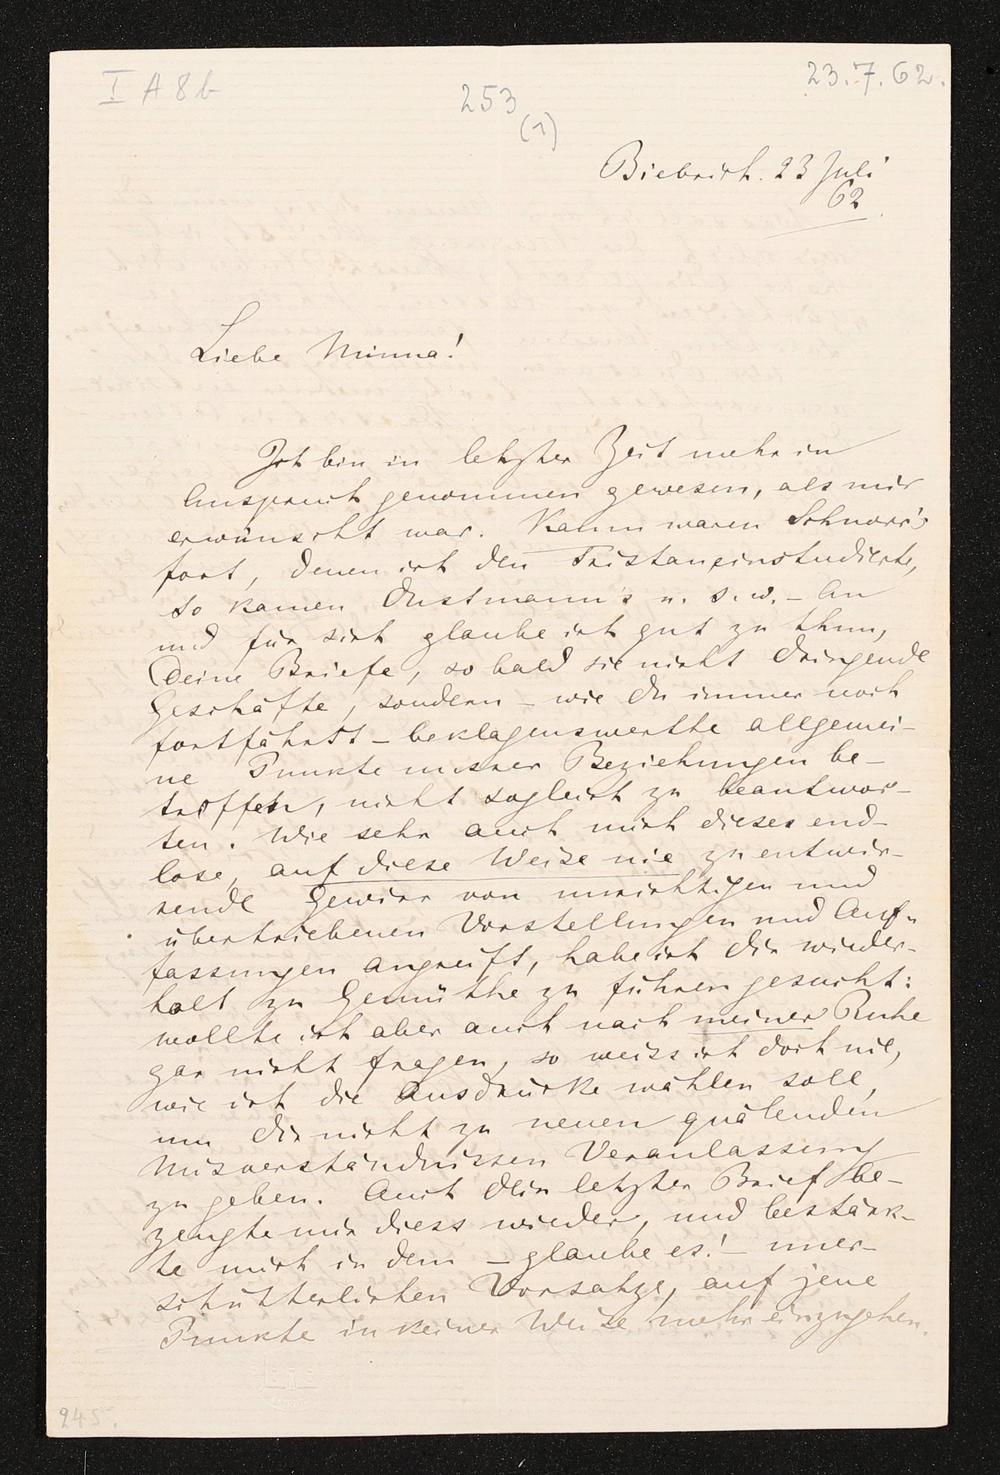 I A 8 b
253
(1)
23.7.62.
Biebrich. 23 Juli
62.
Liebe Minna!
Ich bin in letzter Zeit mehr in
Anspruch genommen gewesen, als mir
erwünscht war. Kaum waren Schnorr's
fort, denen ich den Tristan einstudierte,
so kamen Dustmann's u. s. w. – An
und für sich glaube ich gut zu thun,
Deine Briefe, so bald sie nicht dringende
Geschäfte, sondern – wie du immer noch
fortfährst – beklagenswerthe allgemei-
ne Punkte unsrer Beziehungen be-
treffen, nicht sogleich zu beantwor-
ten. Wie sehr auch mich dieses end-
lose, auf diese Weise nie zu entwir-
rende Gewirr von unrichtigen und
übertriebenen Vorstellungen und Auf-
fassungen angreift, habe ich dir wieder-
holt zu Gemüthe zu führen gesucht:
wollte ich aber auch nach meiner Ruhe
gar nicht fragen, so weiss ich doch nie,
wie ich die Ausdrücke wählen soll,
um dir nicht zu neuen quälenden
Misverständnissen Veranlassung
zu geben. Auch dein letzter Brief be-
zeugte mir diess wieder, und bestärk-
te mich in dem – glaube es! – uner-
schütterlichen Vorsatze, auf jene
Punkte in keiner Weise mehr einzugehen.
245.